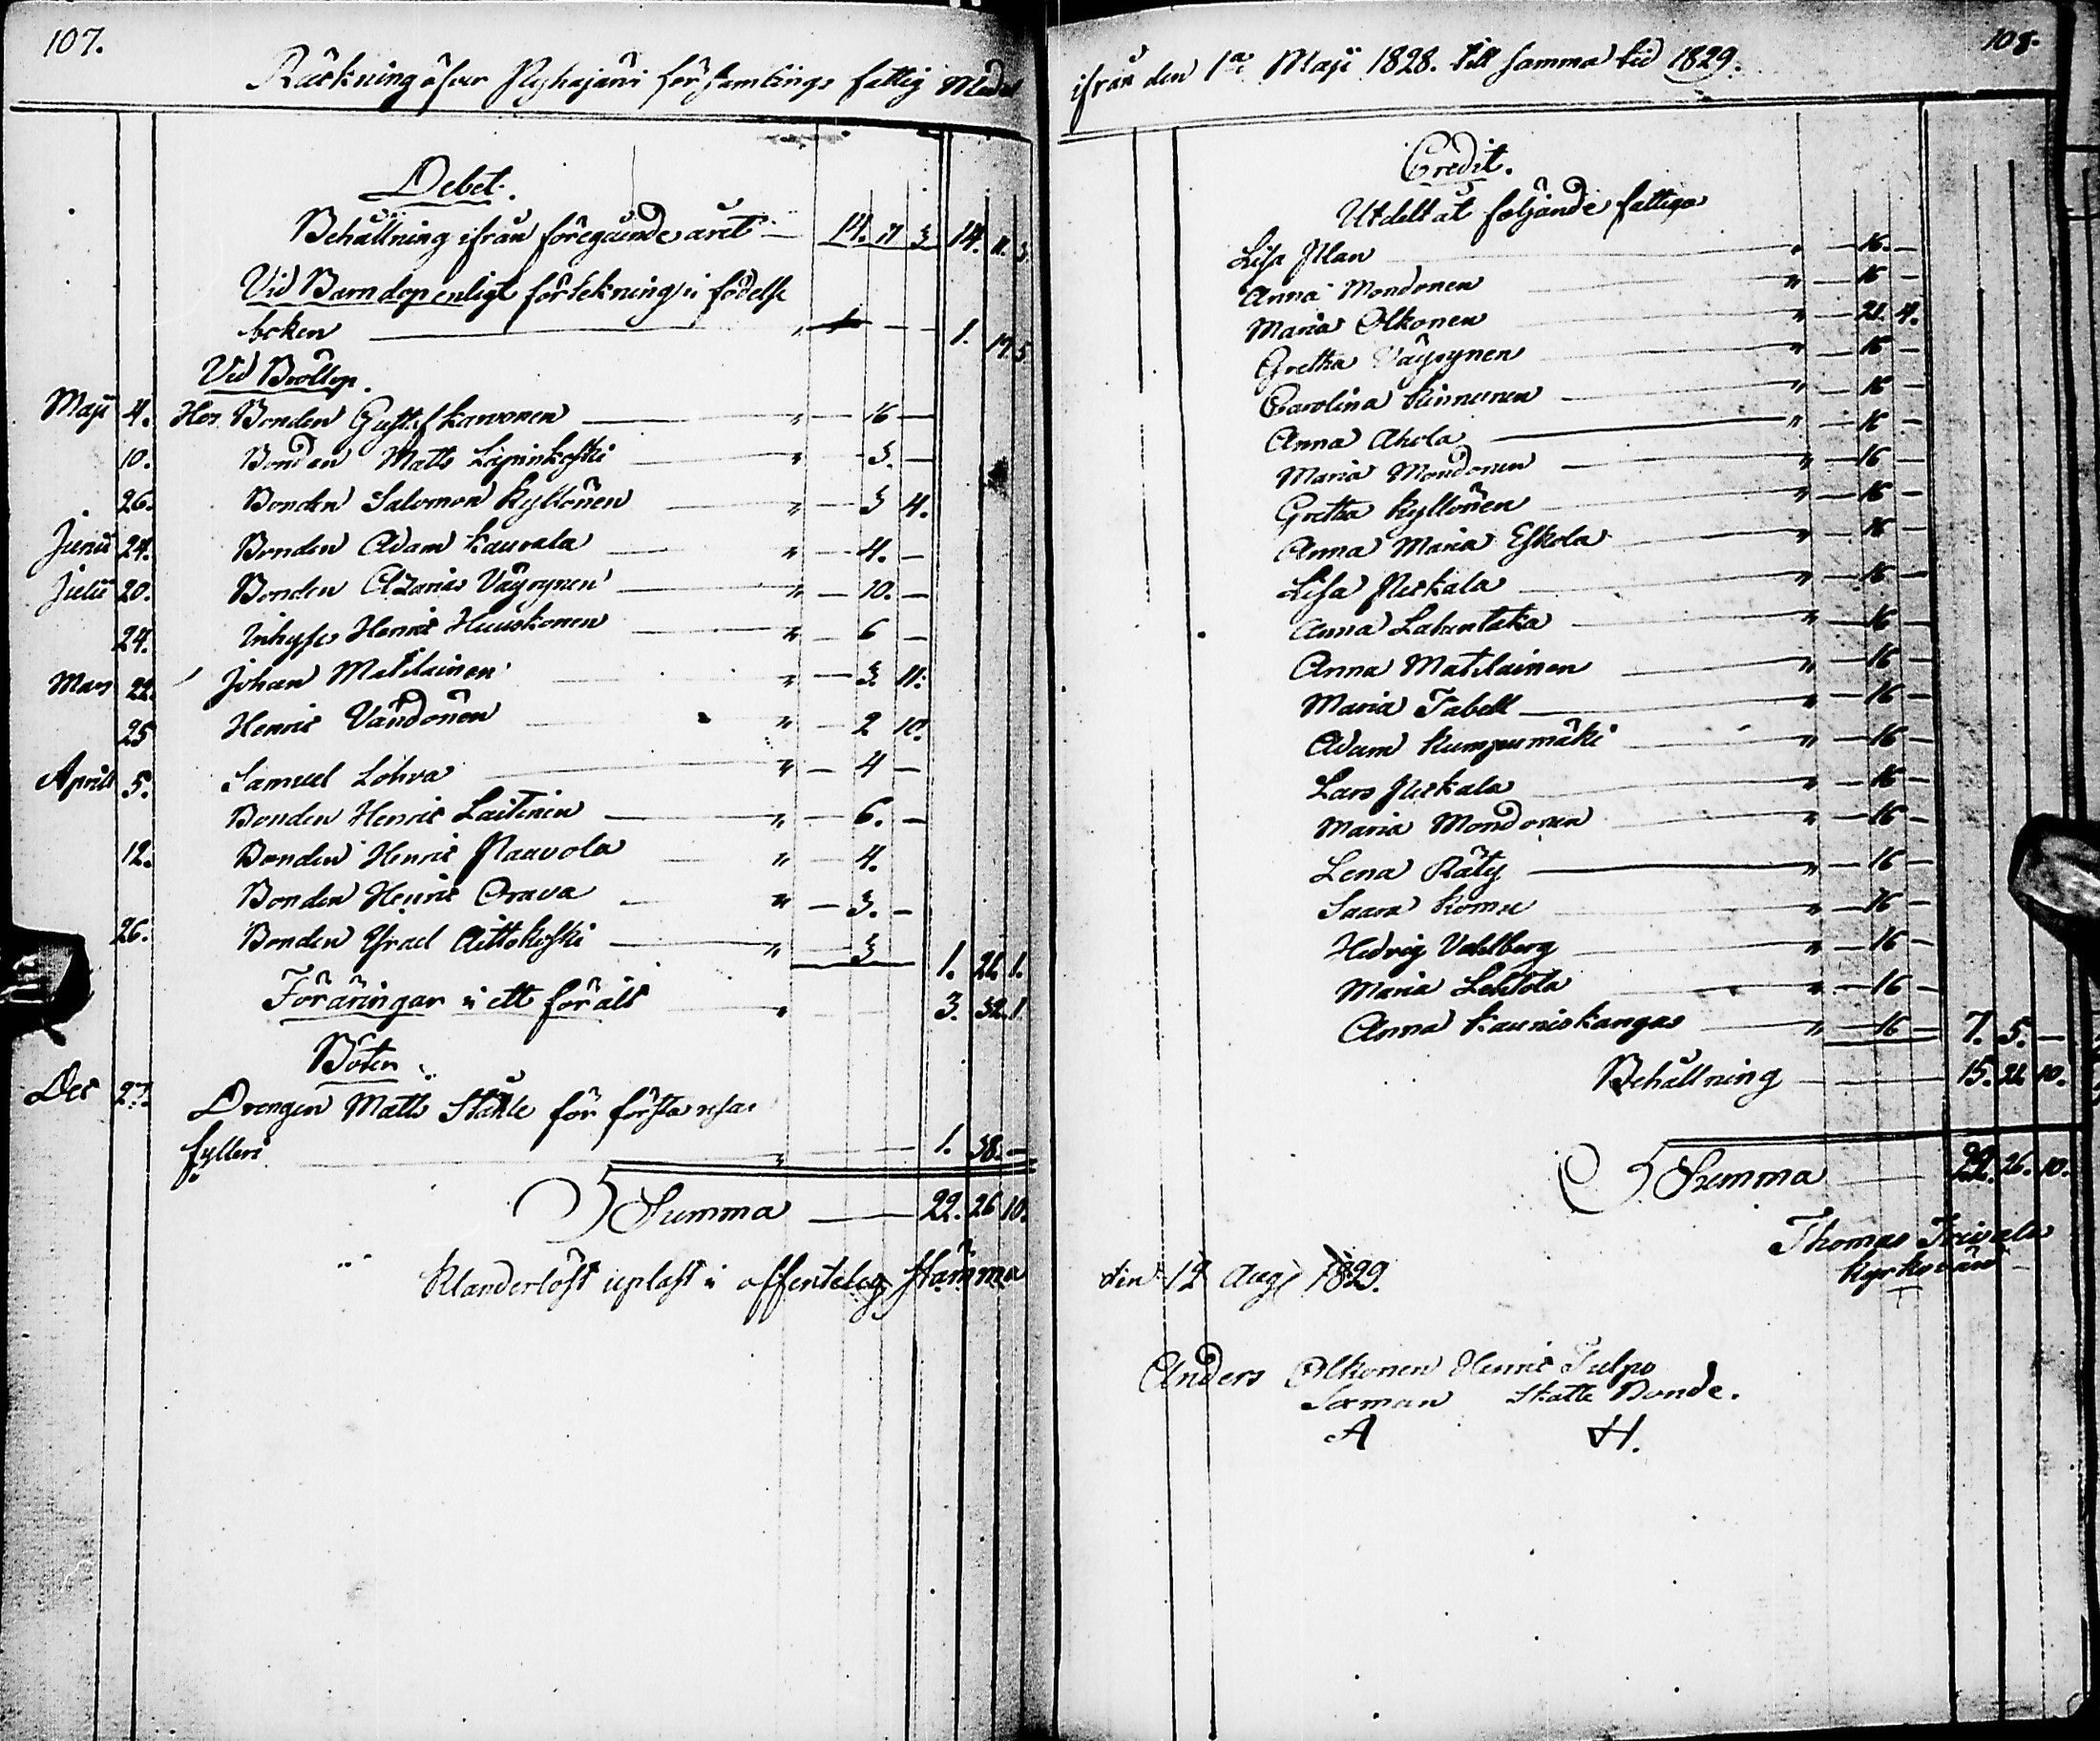 107.
Räckning öfver Pyhäjärvi församlings fattig Medel
Debet.
Behållning ifrån föregående året — 14. 11 3 14. 11. 3
Vid Barndop enligt förtekning i födelse
boken — " — 1. 17. 5
Vid Bröllop.
Maji 4. Hos Bonden Gustaf Karvonen — " — 16 —
10. Bonden Matts Lepinkoski — " — 3. —
26. Bonden Salomon Kyllönen — " — 3 4.
Junii 24. Bonden Adam Kauvala — " — 4. —
Julii 20. Bonden Azarias Väyrynen — " — 10. —
24. Inhyse Henric Huuskonen — " — 6 —
Mars 22. Johan Matilainen — " — 3. 11.
25 Henric Vändönen — " — 2 10.
Aprill 5. Samuel Löhva — " — 4 —
Bonden Henric Laitinen — " — 6. —
12. Bonden Henric Pauvola — " — 4.
Bonden Henric Orava — " — 3. —
26. Bonden Israel Aittokoski — " — 3 1. 21. 1.
Föräringar i ett för alt — " 3. 32. 1
Böter
Dec 27. Drengen Matts Ståhle för första resan
fylleri — " — 1. 38. —
Summa — 22. 26 10.
Klanderlöst upläst i offentelig Stämma
108.
ifrån den 1a Maji 1828. till samma tid 1829.
Credit.
Utdelt åt följande fattiga
Lisa Illan — " — 16. —
Anna Mondonen — " — 16 —
Maria Olkonen — " — 21. 4.
Gretha Väyrynen — " — 16 —
Carolina Kinnunen — " — 16 —
Anna Ahola — " — 16 —
Maria Mondonen — " — 16 —
Gretha Kyllönen — " — 16 —
Anna Maria Eskola — " — 16 —
Lisa Perkala — " — 16 —
Anna Lahentaka — " — 16 —
Anna Matilainen — " — 16 —
Maria Tabell — " — 16 —
Adam Kumpumäki — " — 16 —
Lars Perkala — " — 16 —
Maria Mondonen — " — 16 —
Lena Räty — " — 16 —
Saara Komu — " — 16 —
Hedvig Vahlberg — " — 16 —
Maria Lehtola — " — 16 —
Anna Kauniskangas — " — 16 — 7. 5. —
Behållning — 15. 21 10.
Summa — 22. 26. 10.
Thomas
Kyrkovärd
den 12 Augi 1829.
Anders Olkonen Henric Tulpo
Sexman Skatte Bonde.
A H.